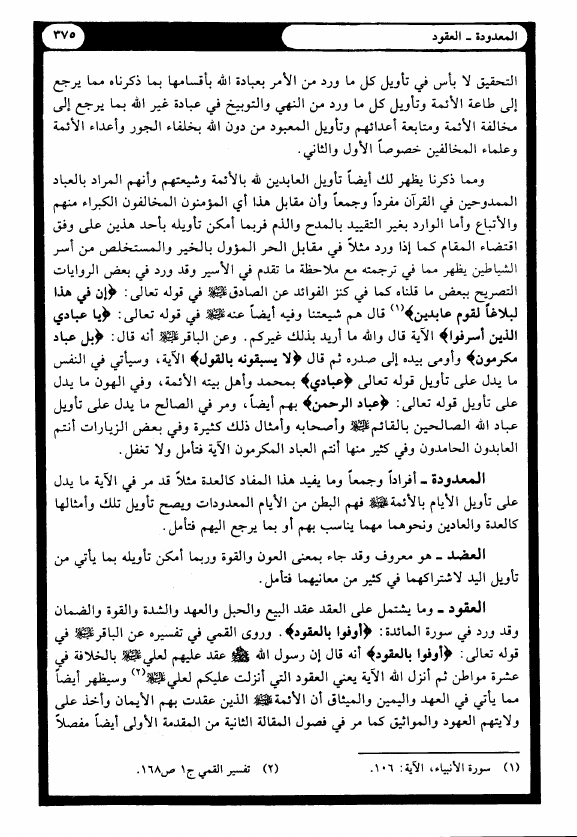 المعدودة ـ العقود
٣٧٥
التحقيق لا بأس في تأويل كل ما ورد من الأمر بعبادة الله بأقسامها بما ذكرناه مما يرجع
إلى طاعة الأئمة وتأويل كل ما ورد من النهي والتوبيخ في عبادة غير الله بما يرجع إلى
مخالفة الأئمة ومتابعة أعدائهم وتأويل المعبود من دون الله بخلفاء الجور وأعداء الأئمة
وعلماء المخالفين خصوصاً الأول والثاني.
ومما ذكرنا يظهر لك أيضاً تأويل العابدين لله بالأئمة وشيعتهم وأنهم المراد بالعباد
الممدوحين في القرآن مفرداً وجمعاً وأن مقابل هذا أي المؤمنون المخالفون الكبراء منهم
والأتباع وأما الوارد بغير التقييد بالمدح والذم فربما أمكن تأويله بأحد هذين على وفق
اقتضاء المقام كما إذا ورد مثلاً في مقابل الحر المؤول بالخير والمستخلص من أسر
الشياطين يظهر مما في ترجمته مع ملاحظة ما تقدم في الأسير وقد ورد في بعض الروايات
التصريح ببعض ما قلناه كما في كنز الفوائد عن الصادق عليه السلام في قوله تعالى: ﴿إن في هذا
لبلاغاً لقوم عابدين﴾(١) قال هم شيعتنا وفيه أيضاً عنه عليه السلام في قوله تعالى: ﴿يا عبادي
الذين أسرفوا﴾ الآية قال والله ما أريد بذلك غيركم. وعن الباقر عليه السلام أنه قال: ﴿بل عباد
مكرمون﴾ وأومى بيده إلى صدره ثم قال ﴿لا يسبقونه بالقول﴾ الآية، وسيأتي في النفس
ما يدل على تأويل قوله تعالى ﴿عبادي﴾ بمحمد وأهل بيته الأئمة، وفي الهون ما يدل
على تأويل قوله تعالى: ﴿عباد الرحمن﴾ بهم أيضاً، ومر في الصالح ما يدل على تأويل
عباد الله الصالحين بالقائم عليه السلام وأصحابه وأمثال ذلك كثيرة وفي بعض الزيارات أنتم
العابدون الحامدون وفي كثير منها أنتم العباد المكرمون الآية فتأمل ولا تغفل.
المعدودة ـ أفراداً وجمعاً وما يفيد هذا المفاد كالعدة مثلاً قد مر في الآية ما يدل
على تأويل الأيام بالأئمة عليهم السلام فهم البطن من الأيام المعدودات ويصح تأويل تلك وأمثالها
كالعدة والعادين ونحوهما مهما يناسب بهم أو بما يرجع اليهم فتأمل.
العضد ـ هو معروف وقد جاء بمعنى العون والقوة وربما أمكن تأويله بما يأتي من
تأويل اليد لاشتراكهما في كثير من معانيهما فتأمل.
العقود ـ وما يشتمل على العقد عقد البيع والحبل والعهد والشدة والقوة والضمان
وقد ورد في سورة المائدة: ﴿أوفوا بالعقود﴾. وروى القمي في تفسيره عن الباقر عليه السلام في
قوله تعالى: ﴿أوفوا بالعقود﴾ أنه قال إن رسول الله ﷺ عقد عليهم لعلي عليه السلام بالخلافة في
عشرة مواطن ثم أنزل الله الآية يعني العقود التي أنزلت عليكم لعلي عليه السلام(٢) وسيظهر أيضاً
مما يأتي في العهد واليمين والميثاق أن الأئمة عليهم السلام الذين عقدت بهم الأيمان وأخذ على
ولايتهم العهود والمواثيق كما مر في فصول المقالة الثانية من المقدمة الأولى أيضاً مفصلاً
(١) سورة الأنبياء، الآية: ١٠٦.
(٢) تفسير القمي ج١ ص١٦٨.